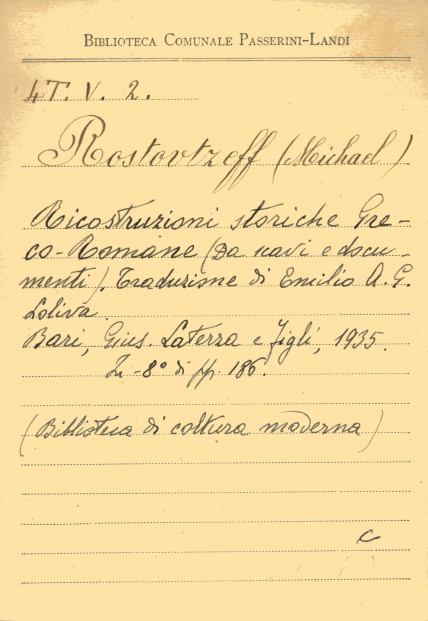 BIBLIOTECA COMUNALE PASSERINI-LANDI
4T. V. 2.
Rostovtzeff (Michael)
Ricostruzioni storiche Gre-
co-Romane (Da scavi e docu-
menti). Traduzione di Emilio A. G.
Loliva.
Bari, Gius. Laterza e Figli, 1935.
In-8º di pp. 186.
(Biblioteca di coltura moderna)
C